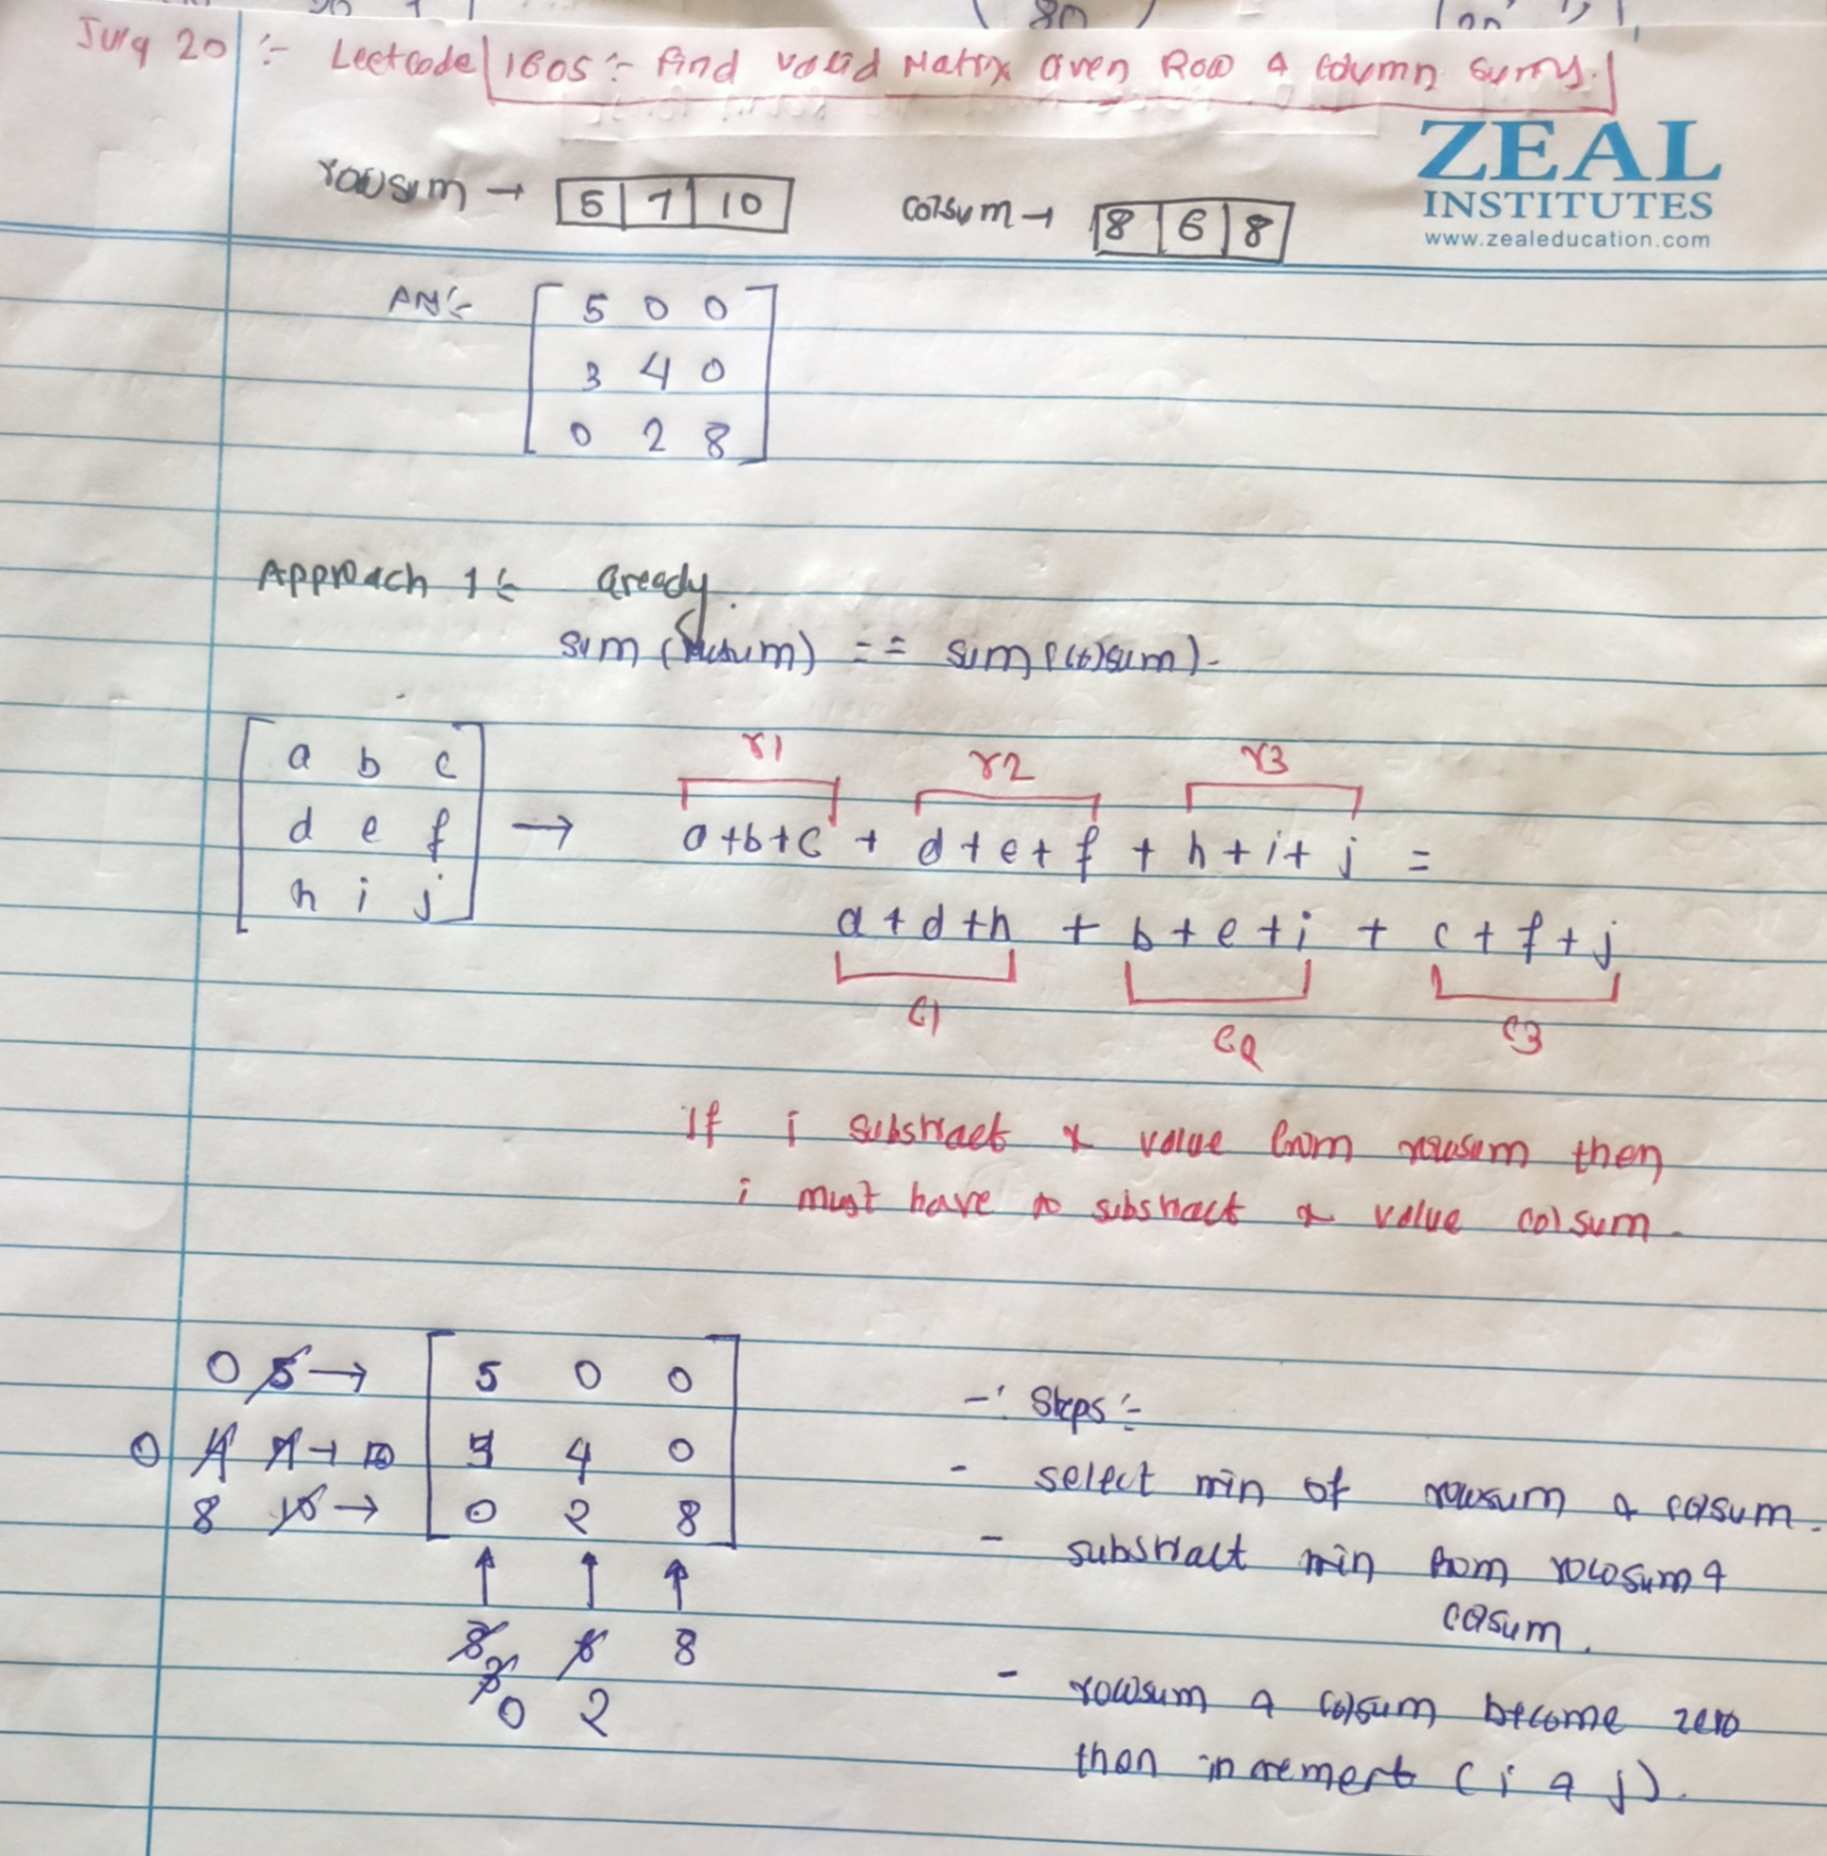 July 20 :- Leetcode 1605 :- Find valid Matrix Given Row & column sums.
ZEAL
INSTITUTES
www.zealeducation.com
rowsum → 5 7 10 colsum → 8 6 8
ANS:-
5 0 0
3 4 0
0 2 8
Approach 1 :- Greedy.
sum (rowsum) == sum (colsum).
r1 r2 r3
a b c
d e f → a+b+c + d+e+f + h+i+j =
h i j
a+d+h + b+e+i + c+f+j
C1 C2 C3
If i substract x value from rowsum then
i must have to substract x value colsum.
0 5 → 5 0 0
0 4 7 → 3 4 0
8 10 → 0 2 8
↑ ↑ ↑
8 6 8
3
0 2
-: Steps :-
- select min of rowsum & colsum.
- substract min from rowsum &
colsum.
- rowsum & colsum become zero
then increment (i & j).